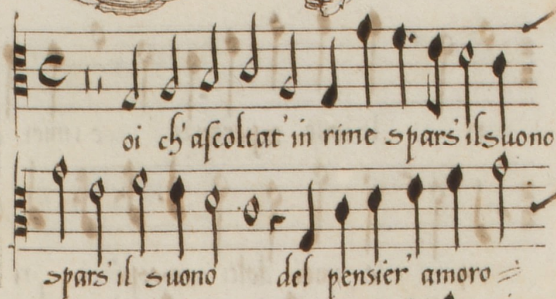 oi ch'ascoltat' in rime spars' il suono
spars' il suono del pensier' amoro=